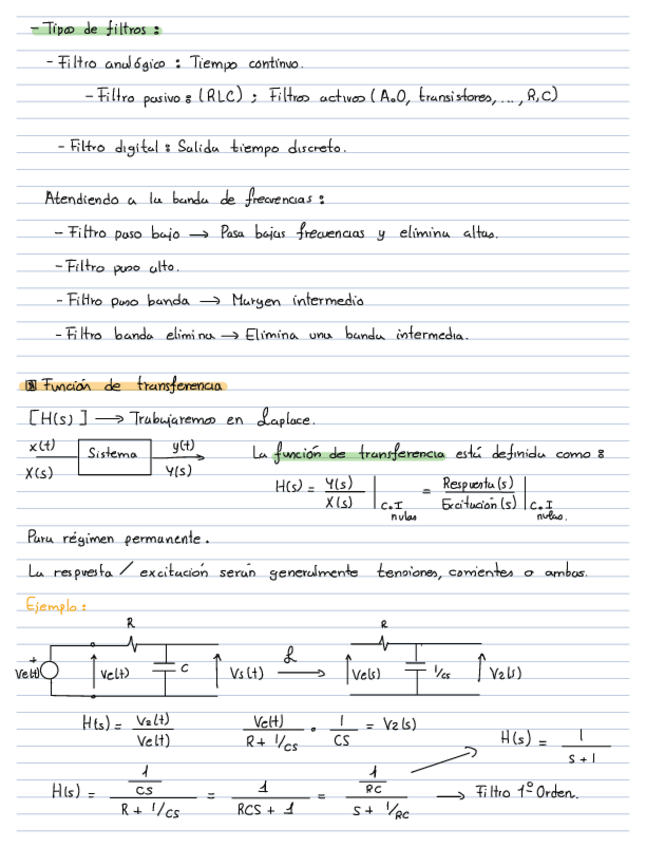 - Tipos de filtros:
- Filtro analógico: Tiempo continuo.
- Filtro pasivo: (RLC); Filtros activos (A.O, transistores, ..., R,C)
- Filtro digital: Salida tiempo discreto.
Atendiendo a la banda de frecuencias:
- Filtro paso bajo → Pasa bajas frecuencias y elimina altas.
- Filtro paso alto.
- Filtro paso banda → Margen intermedio
- Filtro banda elimina → Elimina una banda intermedia.
Función de transferencia
[H(s)] → Trabajaremos en Laplace.
x(t) Sistema y(t)
X(s) Y(s)
La función de transferencia está definida como:
H(s) = Y(s)/X(s) | C.I nulas = Respuesta(s)/Excitación(s) | C.I nulas.
Para régimen permanente.
La respuesta / excitación serán generalmente tensiones, corrientes o ambas.
Ejemplo:
R R
+ Ve(t) Ve(t) C Vs(t) ℒ → Ve(s) 1/cs V2(s)
H(s) = V2(t)/Ve(t) Ve(t)/(R + 1/CS) · 1/CS = V2(s) H(s) = 1/(s+1)
H(s) = (1/CS)/(R + 1/CS) = 1/(RCS + 1) = (1/RC)/(S + 1/RC) → Filtro 1º Orden.